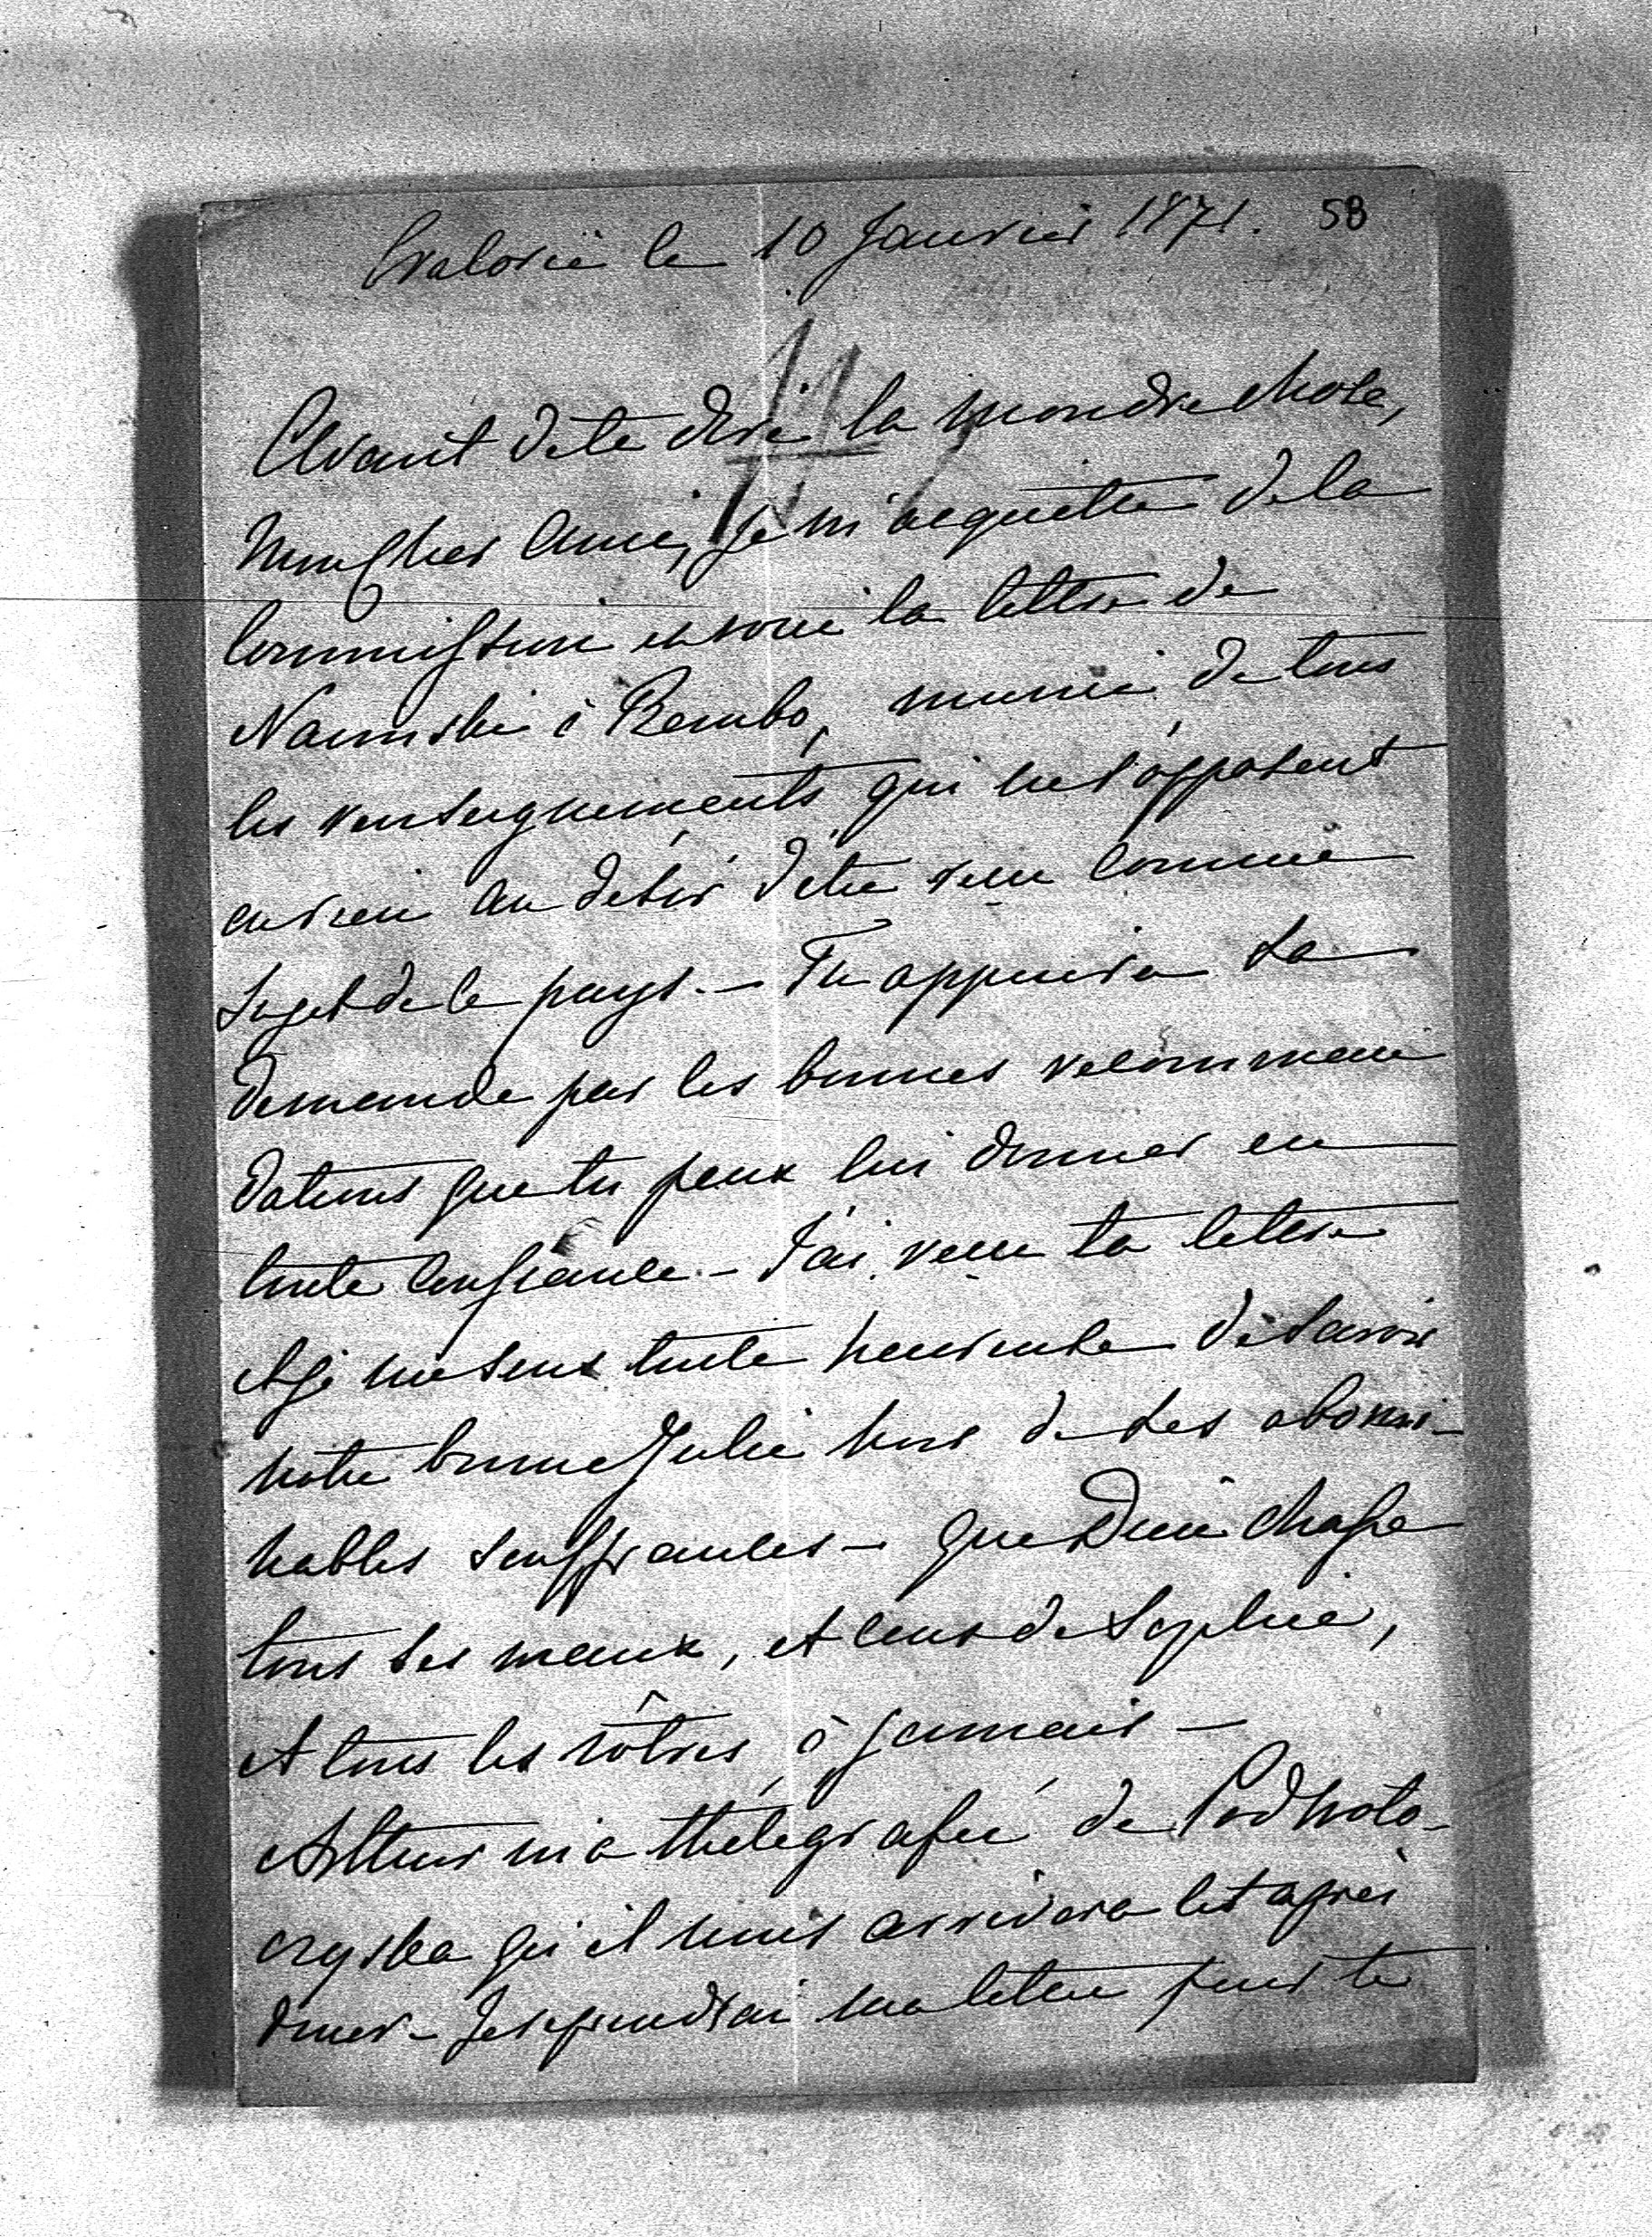 le 10 Janvier 1871. 58
Avant de te dire la moindre chose,
mon Cher Ami, je m'acquitte de la
Commission la lettre de
à Rembo, munie de tous
les renseignements qui ne s'opposent
en rien au désir d'être reçu comme
sujet de le pays. — Tu appuiera sa
demande par les bonnes recomman
dations que tu peux lui donner en
toute Confiance. — J'ai reçu ta lettre
et je me sens toute heureuse de savoir
notre bonne Julie hors de ses abomi-
nables souffrances — que Dieu chasse
tous ses maux, et ceux de Sophie,
et tous les vôtres, à jamais —
Arthur m'a thélégrafié de Podwoto-
czyska qu'il nous arrivera cet après
diner — Je reprendrai ma lettre pour te